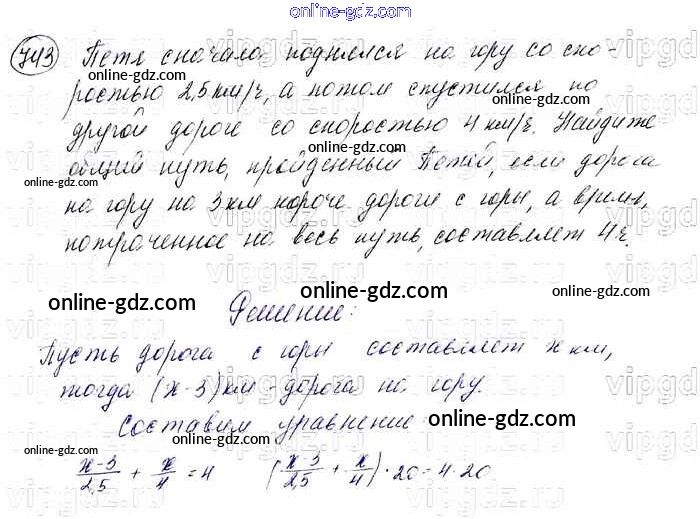 online-gdz.com
743 Петя сначала поднялся на гору со ско-
ростью 2,5 км/ч, а потом спустился по
online-gdz.com
другой дороге со скоростью 4 км/ч. Найдите
общий путь, пройденный Петей, если дорога
online-gdz.com online-gdz.com
на гору на 3 км короче дороги с горы, а время,
потраченное на весь путь, составляет 4 ч.
online-gdz.com online-gdz.com
Решение:
Пусть дорога с горы составляет x км,
тогда (x-3) км - дорога на гору.
online-gdz.com
Составим уравнение
online-gdz.com online-gdz.com
(x-3)/2,5 + x/4 = 4 ((x-3)/2,5 + x/4) · 20 = 4 · 20
online-gdz.com